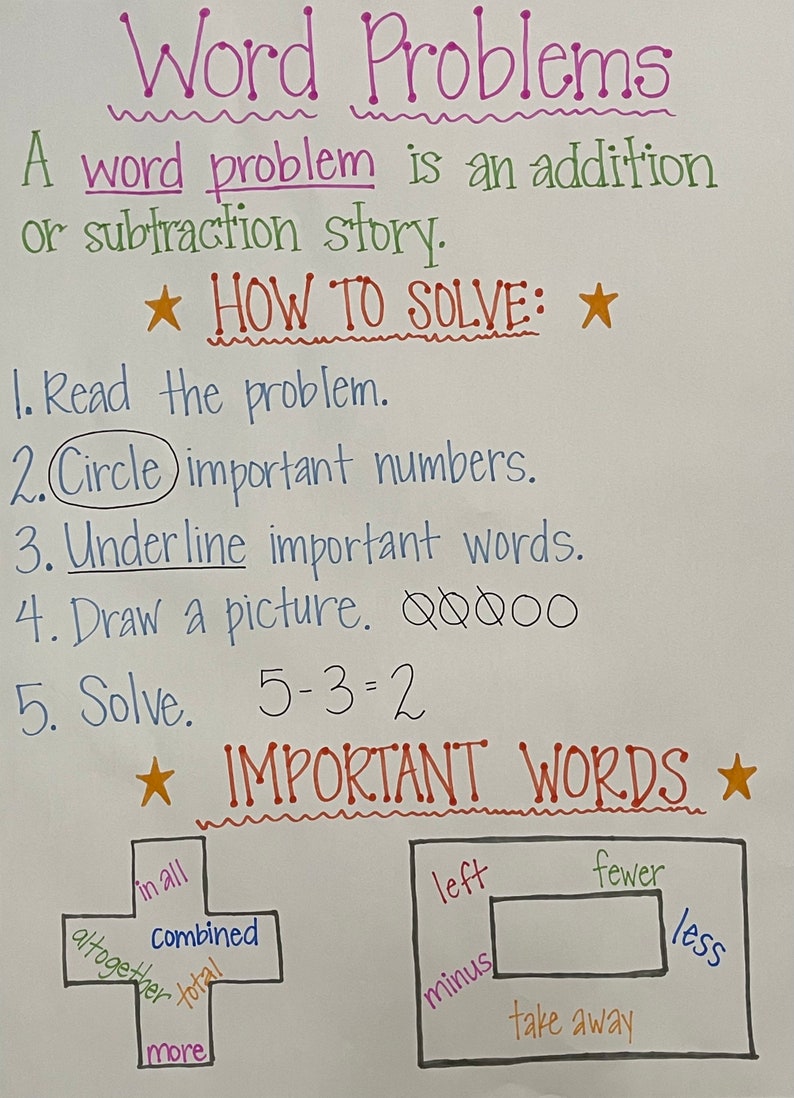 Word Problems
A word problem is an addition
or subtraction story.
HOW TO SOLVE:
1. Read the problem.
2. Circle important numbers.
3. Underline important words.
4. Draw a picture.
5. Solve. 5-3=2
IMPORTANT WORDS
in all
combined
altogether
total
more
left
fewer
less
minus
take away